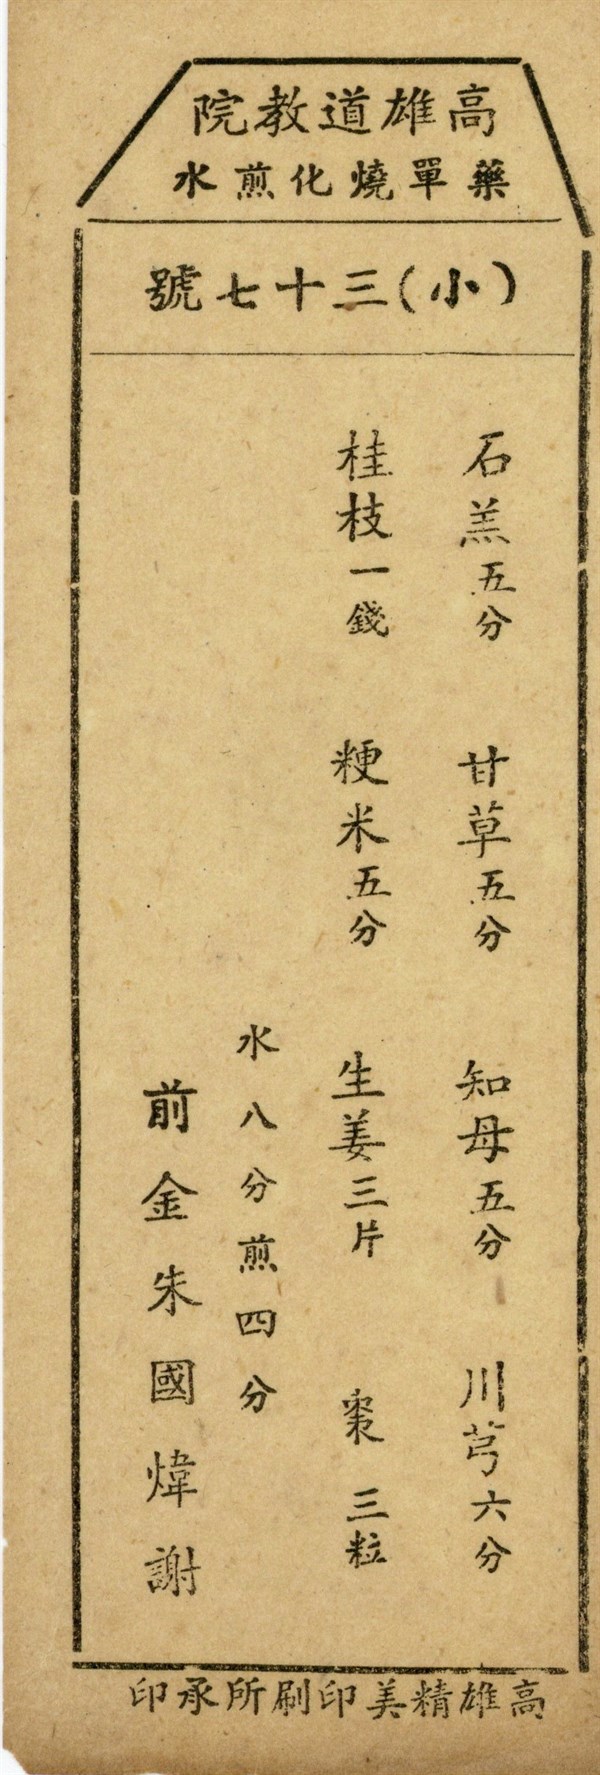 高雄道教院
藥單燒化煎水
(小)三十七號
石羔五分 甘草五分 知母五分 川芎六分
桂枝一錢 粳米五分 生姜三片 枣三粒
水八分煎四分
前金朱國煒謝
高雄精美印刷所承印